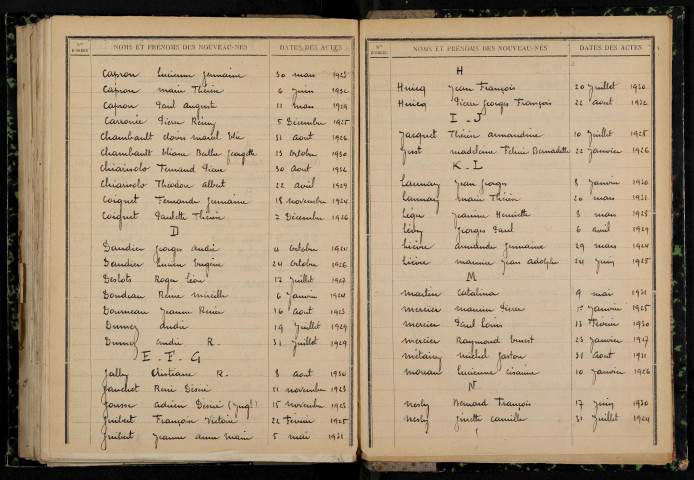 NOMS ET PRÉNOMS DES NOUVEAU-NÉS DATES DES ACTES
Capron Lucienne Germaine 30 mars 1925
Capron Marie Thérèse 6 Juin
Capron Paul August 11 mars 1929
Pierre Rémy 5 Décembre 1925
Chambault Clovis Marcel 31 Aout 1926
Chambault Eliane Berthe Georgette 13 Octobre 1930
Chiainolo Fernand Pierre 30 Aout
Chiainolo Théodore Albert 22 avril 1929
Coignet Fernande Germaine 18 novembre 1924
Coignet Paulette Thérèse 7 Décembre 1926
D
Daudier Georges André 4 Octobre 1924
Daudier Lucien Eugène 24 Octobre 1926
Deslots Roger Léon 17 Juillet
Boudeau Reine Mireille 6 Janvier 1924
Bonneau Jeanne 16 Aout 1923
André 19 Juillet 1929
André R. 31 Juillet 1929
E - F - G
Jalby Christiane R. 8 Aout 1930
René Désiré 11 novembre 1923
Adrien Désiré 15 novembre 1925
Guibert François Victore 22 Février 1925
Guibert Jeanne Anne Marie 5 mai 1931
NOMS ET PRÉNOMS DES NOUVEAU-NÉS DATES DES ACTES
H
Hucq Jean François 20 Juillet 1930
Hucq Pierre Georges François 22 Aout 1932
I - J
Jacquet Thérèse Amandine 10 Juillet 1925
Just Madeleine Félicie Bernadette 22 Janvier 1926
K - L
Launay Jean Georges 8 Janvier 1930
Launay Marie Thérèse 20 mars 1931
Jeanne Henriette 8 mars 1925
Lévy Georges Paul 6 Avril 1929
Lièvre Amande Germaine 29 mars 1924
Lièvre Maurice Jean Adolphe 24 Juin 1925
M
Martin Catalina 9 mai 1931
Mercier Maurice Pierre Janvier 1925
Mercier Paul Louis 13 Février 1930
Mercier Raymond Ernest 23 Janvier 1927
Métairie Michel Gaston 31 Aout 1931
Moreau Lucienne 10 Janvier 1926
N
Nesly Bernard François 17 Juin 1930
Nesly Ginette Camille 31 Juillet 1924